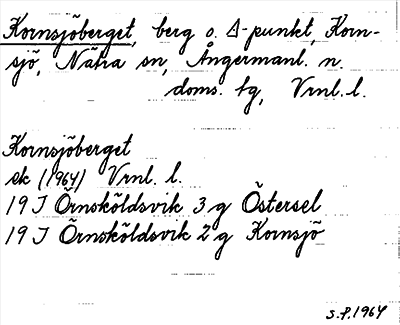 Kornsjöberget, berg o. Δ-punkt, Korn-
sjö, Nätra sn, Ångermanl. n.
doms. tg, Vrnl. l.
Kornsjöberget
ek (1964) Vrnl. l.
19 J Örnsköldsvik 3 g Östersel
19 J Örnsköldsvik 2 g Kornsjö
s.f. 1964